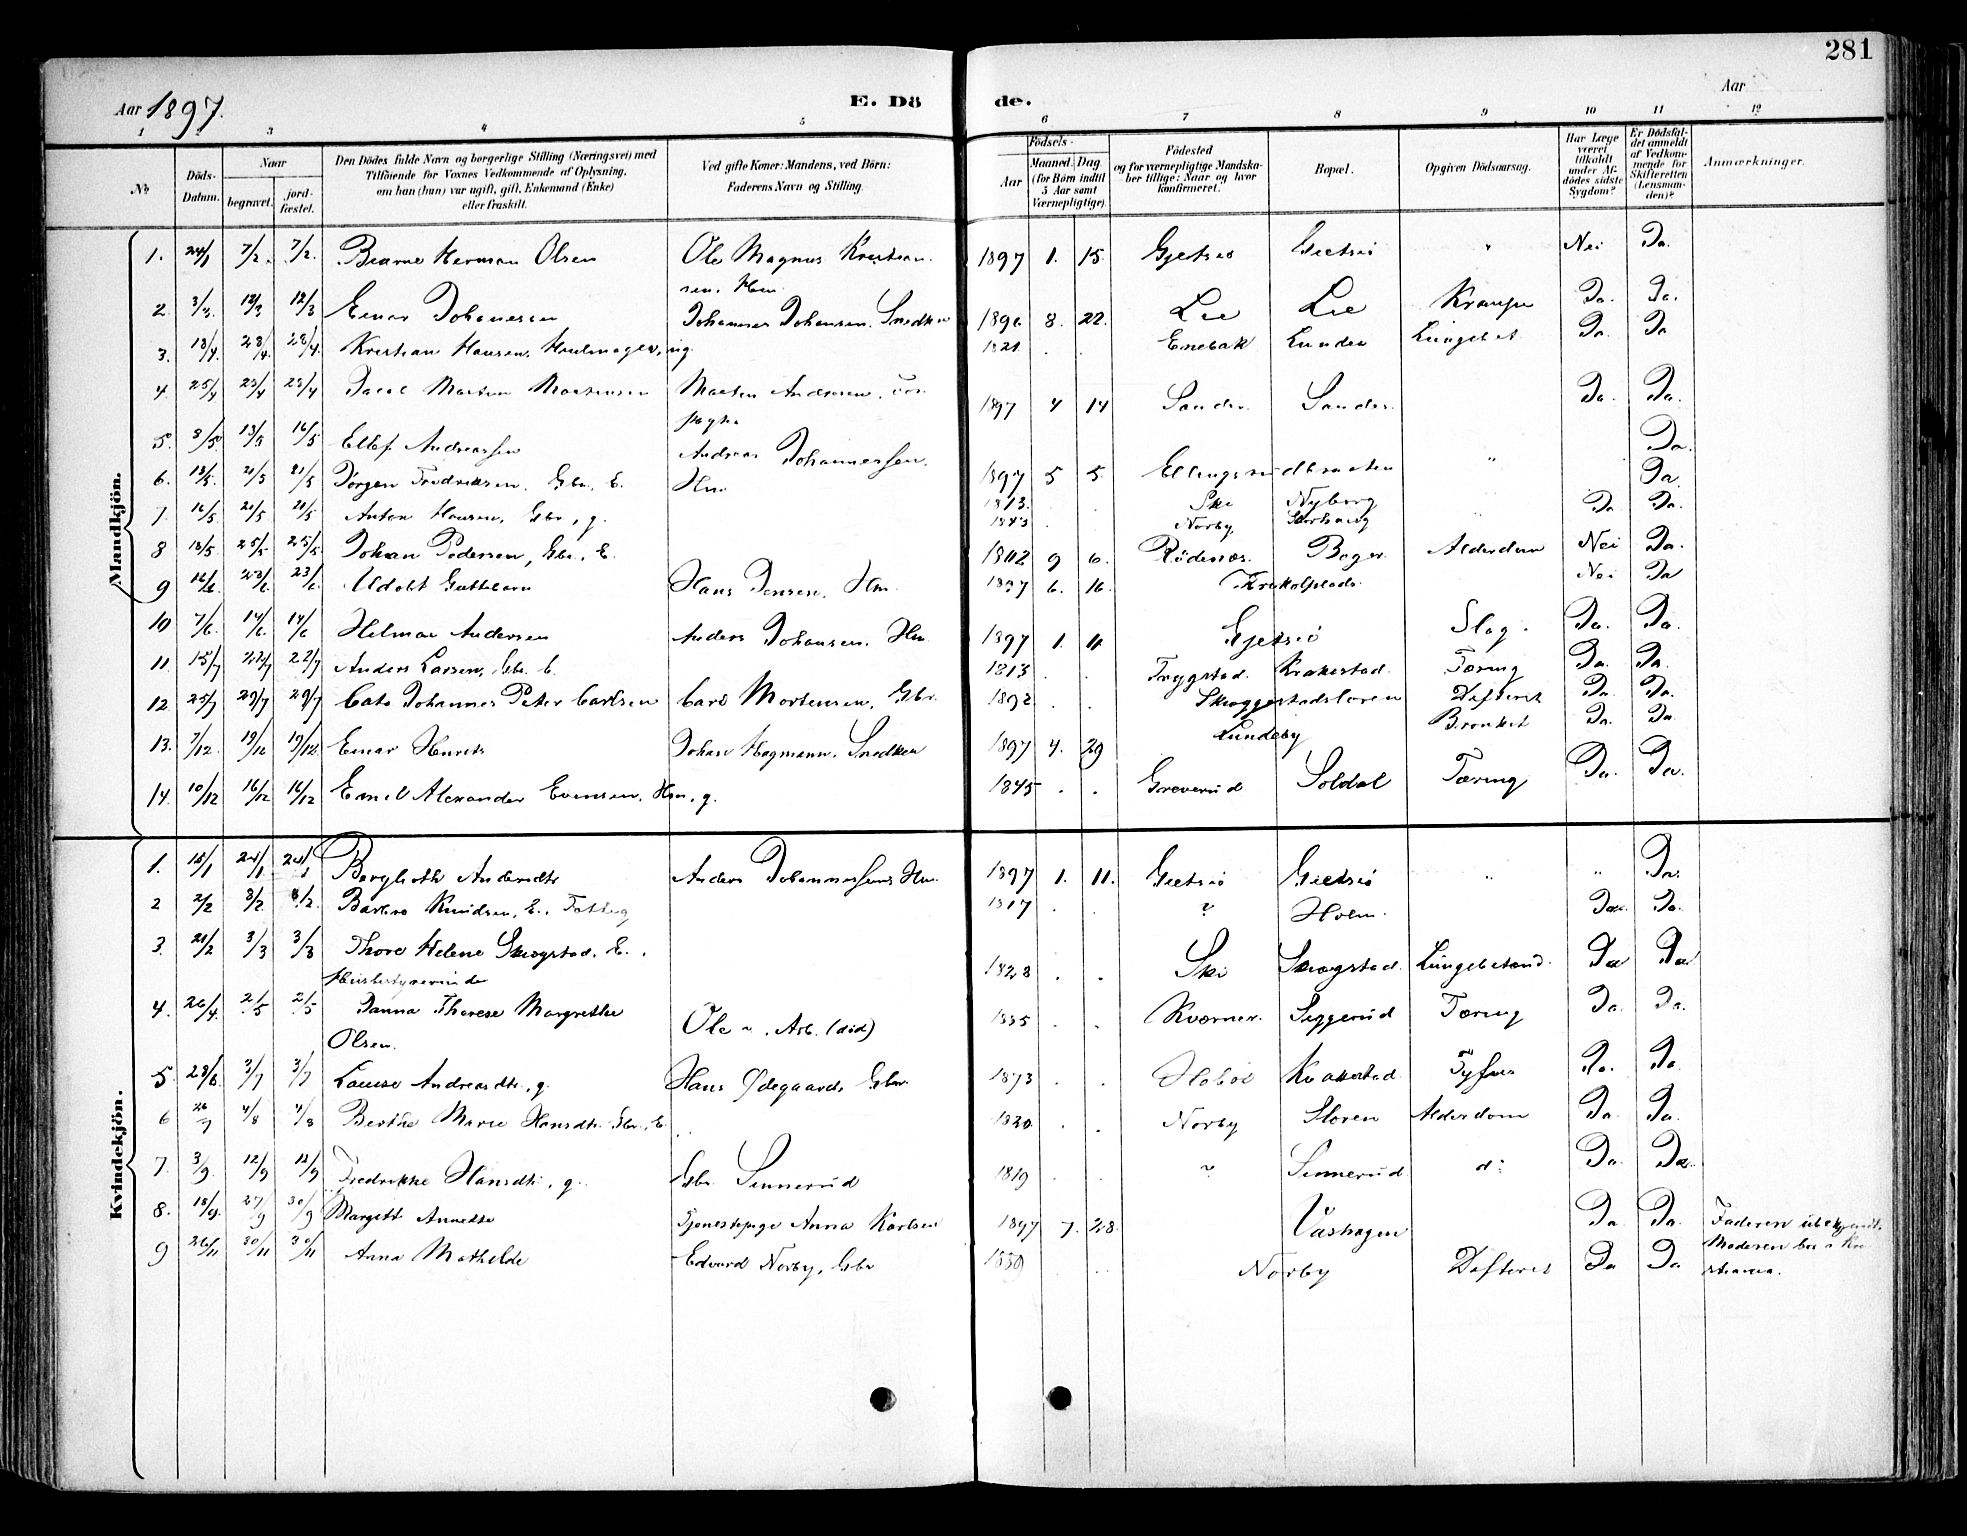 281
Aar 1897.
E. Dö de.
Aar
1 2 3 4 5 6 7 8 9 10 11 12
No
Döds-Datum.
Naar
begravet.
jord-fæstet.
Den Dödes fulde Navn og borgerlige Stilling (Næringsvei) med
Tilföiende for Voxnes Vedkommende af Oplysning,
om han (hun) var ugift, gift, Enkemand (Enke)
eller fraskilt.
Ved gifte Koner: Mandens, ved Börn:
Faderens Navn og Stilling.
Födsels-
Aar
Maaned. Dag.
(for Börn indtil
5 Aar samt
Værnepligtige).
Födested
og for værnepligtige Mandska-
ber tillige: Naar og hvor
konfirmeret.
Bopæl.
Opgiven Dödsaarsag.
Har Læge
været
tilkaldt
under Af-
dödes sidste
Sygdom?
Er Dödsfal-
det anmeldt
af Vedkom-
mende for
Skifteretten
(Lensman-
den)?
Anmærkninger.
Mandkjön.
1. 24/1 7/2. 7/2. Bjarne Herman Olsen Ole Magnus Kristian- 1897 1. 15. Gjetsiö Gjetsiö " Nei Ja.
sen. Hm.
2. 3/3 12/3 12/3 Einar Johansen Johannes Johansen. Snedker 1896 8. 22. Lie Lie Krampe Ja. Ja.
3. 18/4 28/4. 28/4. Kristian Hansen, Hjulmager, ug. 1821 . . Enebak Lunder Lungebet. Ja. Ja
4. 25/4 29/4 29/4 Jacob Morten Mortensen Morten Andersen, 1897 4 14 Sander. Sander. Ja. Ja.
5. 8/5. 13/5 16/5 Ellef Andreassen Andreas Johannessen. 1897 5 5. Ellingsrudbraaten " Ja.
Hm.
6. 13/5. 21/5 21/5 Jörgen Fredriksen. Gbr. E. 1813. . . Ski Nyborg Ja.
7 16/5 21/5 21/5 Anton Hansen, Gbr, g. 1843 . . Norby Ja Ja.
8 18/5. 25/5 25/5 Johan Pedersen, Gbr. E. 1802 9 6. Rödenæs. Boger Alderdom Nei Ja.
9 16/6 23/6. 23/6. Udöbt Guttebarn Hans Jensen. Hm. 1897 6. 16. Nei Ja
10 7/6. 14/6. 14/6 Hilmar Andersen Anders Johansen. Hm. 1897 1. 11 Gjetsiö Slag. Ja. Ja.
11. 15/7 22/7 22/7 Anders Larsen, Gbr. E. 1813 . . Trygstad. Krakestad. Tæring Ja. Ja.
12. 25/7 29/7 29/7 Cato Johannes Peter Carlsen Carl Mortensen, Gbr. 1892 . . Skoggestadsloren Difterit Ja. Ja.
13. 7/12. 19/12 19/12. Einar Henrik Johan Hagmann. Snedker 1897 4. 29 Lundeby Bronkit Ja. Ja.
14. 10/12 16/12 16/12 Emil Alexander Evensen, Hm, g. 1845 . . Greverud Soldal Tæring Ja. Ja.
Kvindekjön.
1. 15/1 24/1 24/1 Borghild Andersdtr Anders Johannessens Hm. 1897 1. 11. Gjetsiö Gjetsiö " " Ja.
2 2/2 8/2. 8/2. Barbro Knudsen, E. Fattig 1817 . . " Holm. Ja. Ja.
3. 21/2 3/3 3/3 Thore Helene Skogstad. E. . 1828 . . Ski Skogstad. Lungebetænd. Ja Ja
Husbestyrerinde
4. 26/4. 2/5 2/5 Janna Therese Margrethe Ole ", Arb. (död) 1835 . . Kværner. Siggerud Tæring Ja. Ja.
Olsen.
5. 28/6 3/7 3/7 Louise Andreasdtr. g. Hans Ødegaard, Gbr. 1873 . . Haböl Krakestad Tyfus Ja. Ja.
6 26/7 4/8 4/8 Berthe Marie Hansdtr. Gbr. E. 1820 . . Norby Sloren Alderdom Ja. Ja.
7. 3/9. 12/9 12/9 Fredrikke Hansdtr, g. Gbr. Sinnerud 1819 . . " Sinnerud do Ja. Ja.
8. 18/9. 27/9 30/9 Margitt Annette Tjenestepige Anna Karlsen 1897 7. 28. Vashagen Ja. Ja. Faderen ubekjendt.
Moderen bor i Kri-
stiania.
9 26/11 30/11 30/11 Anna Mathilde Edvard Norby, Gbr 1889 . . Norby Difterit Ja Ja